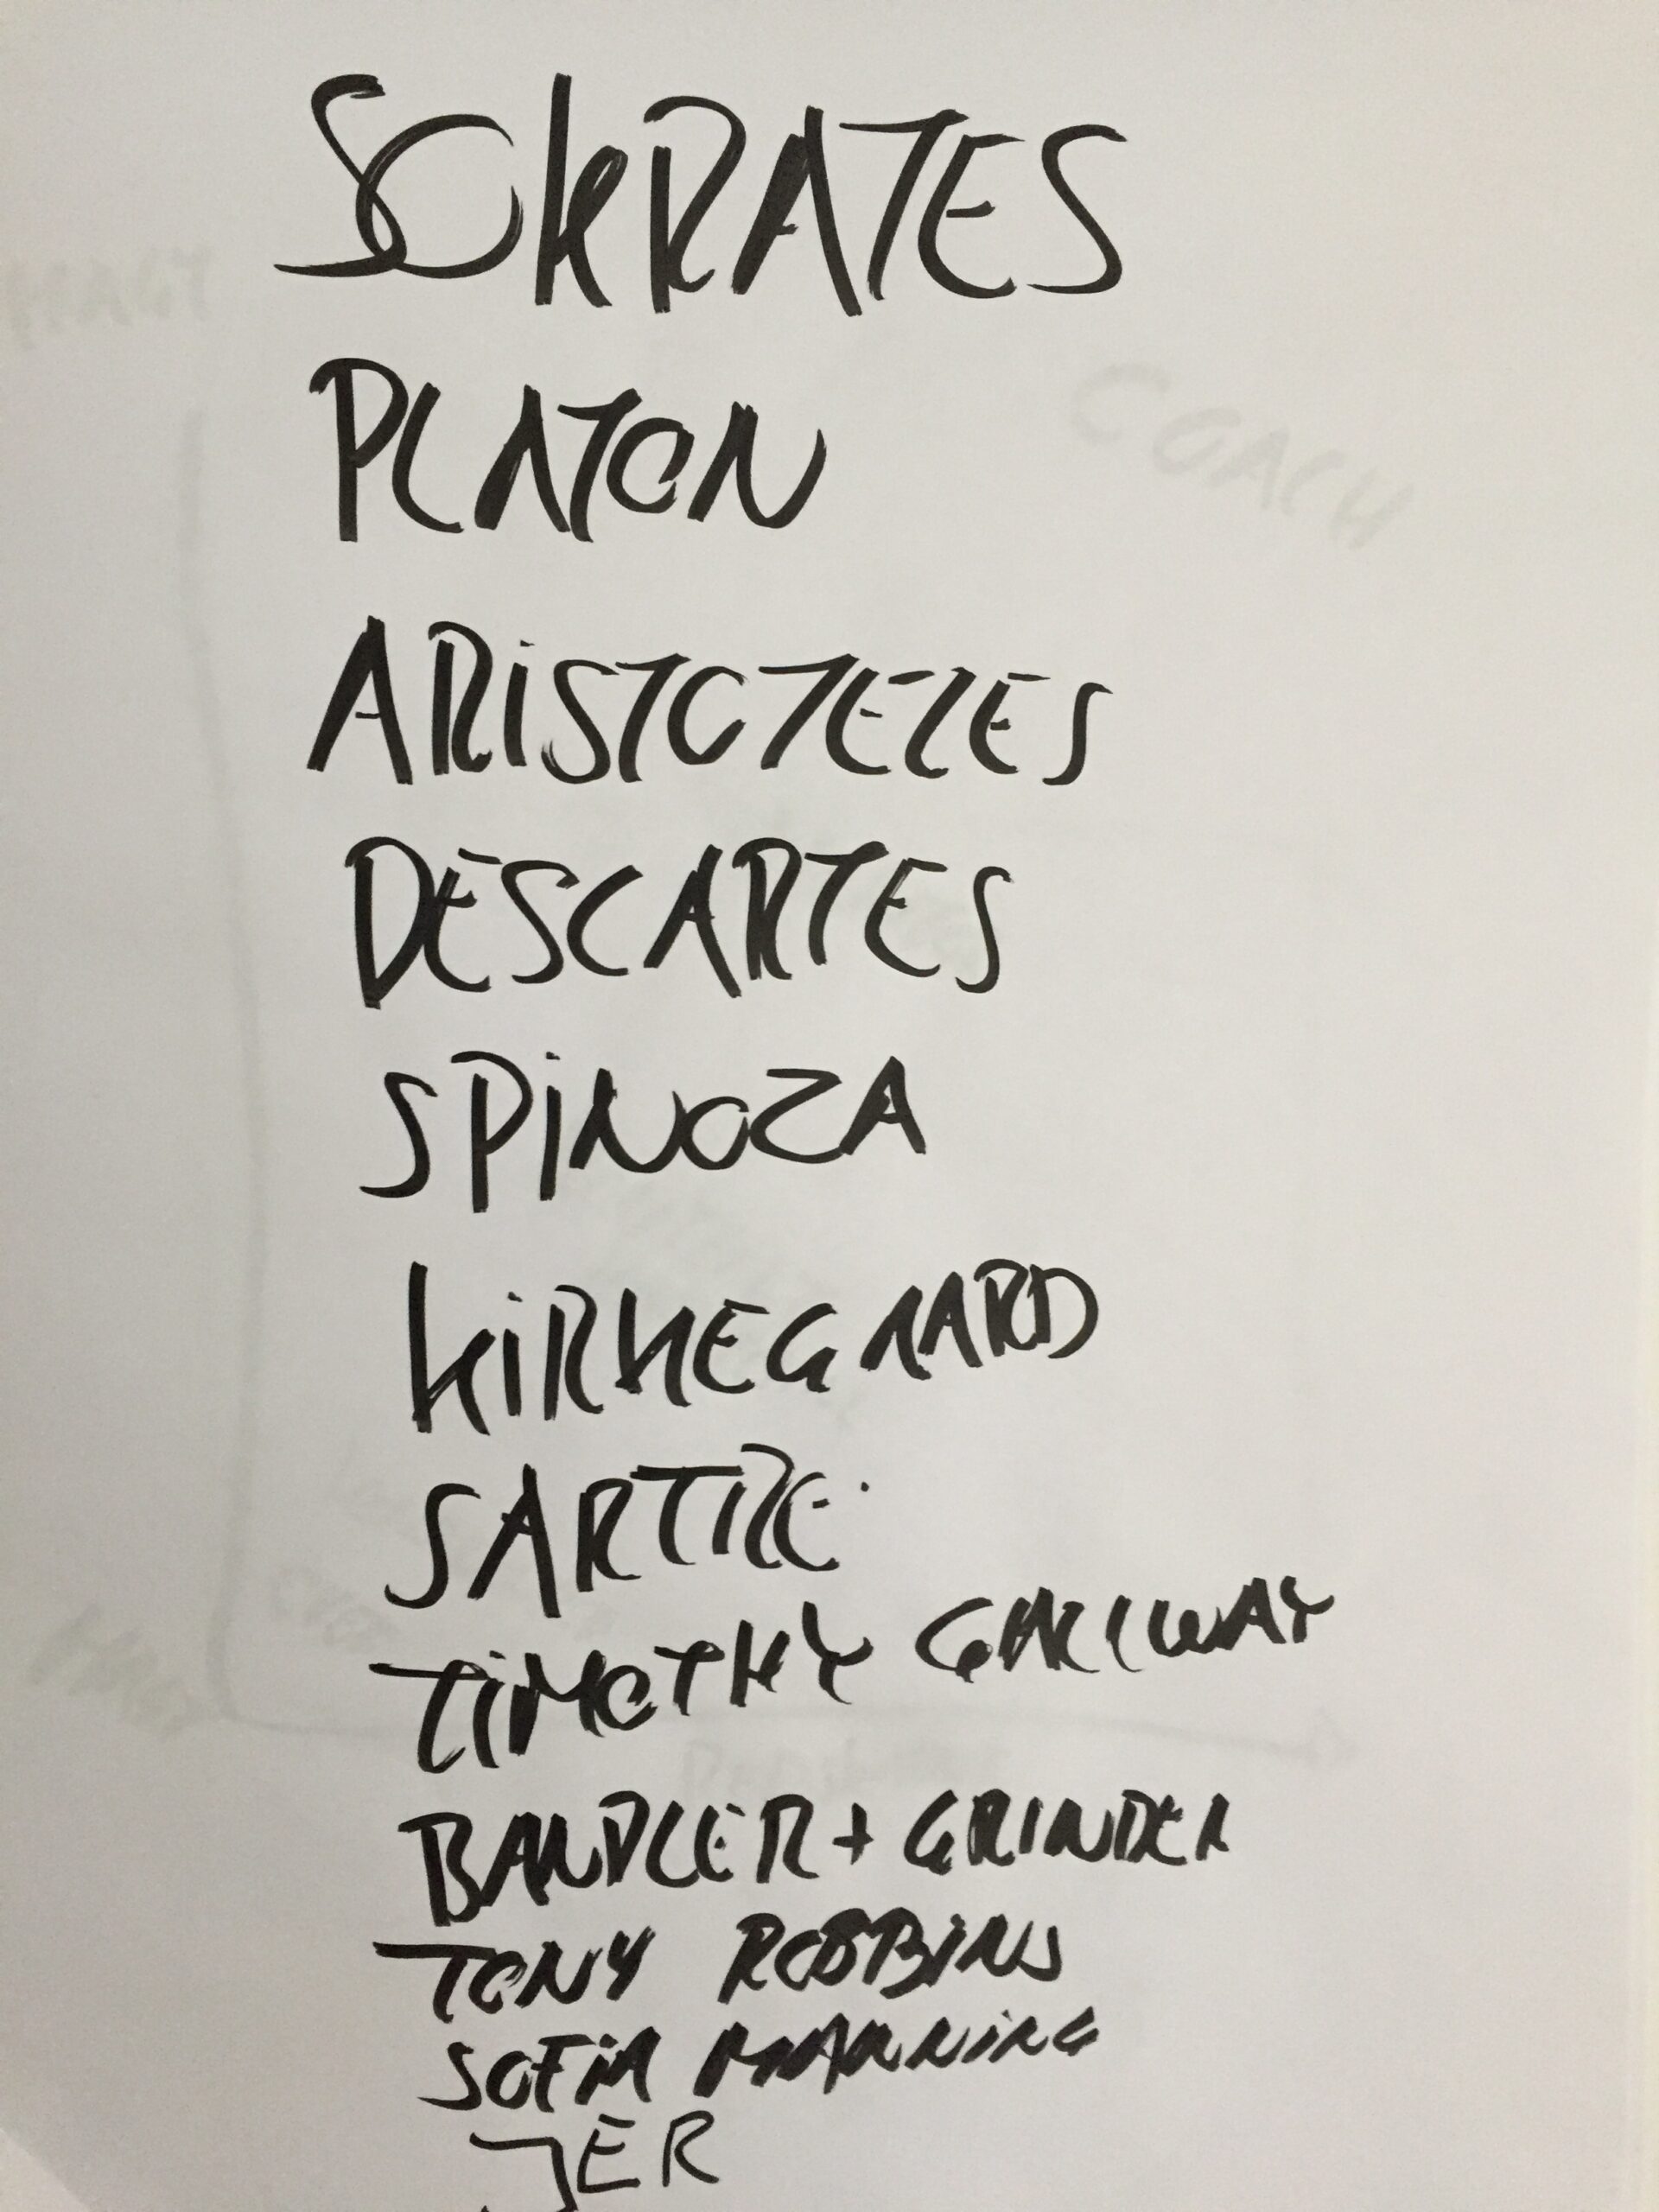 SOKRATES
PLATON
ARISTOTELES
DESCARTES
SPINOZA
KIRKEGAARD
SARTRE
TIMOTHY GALLWAY
BANDLER + GRINDER
TONY ROBBINS
SOFIA MANNING
JER
COACH